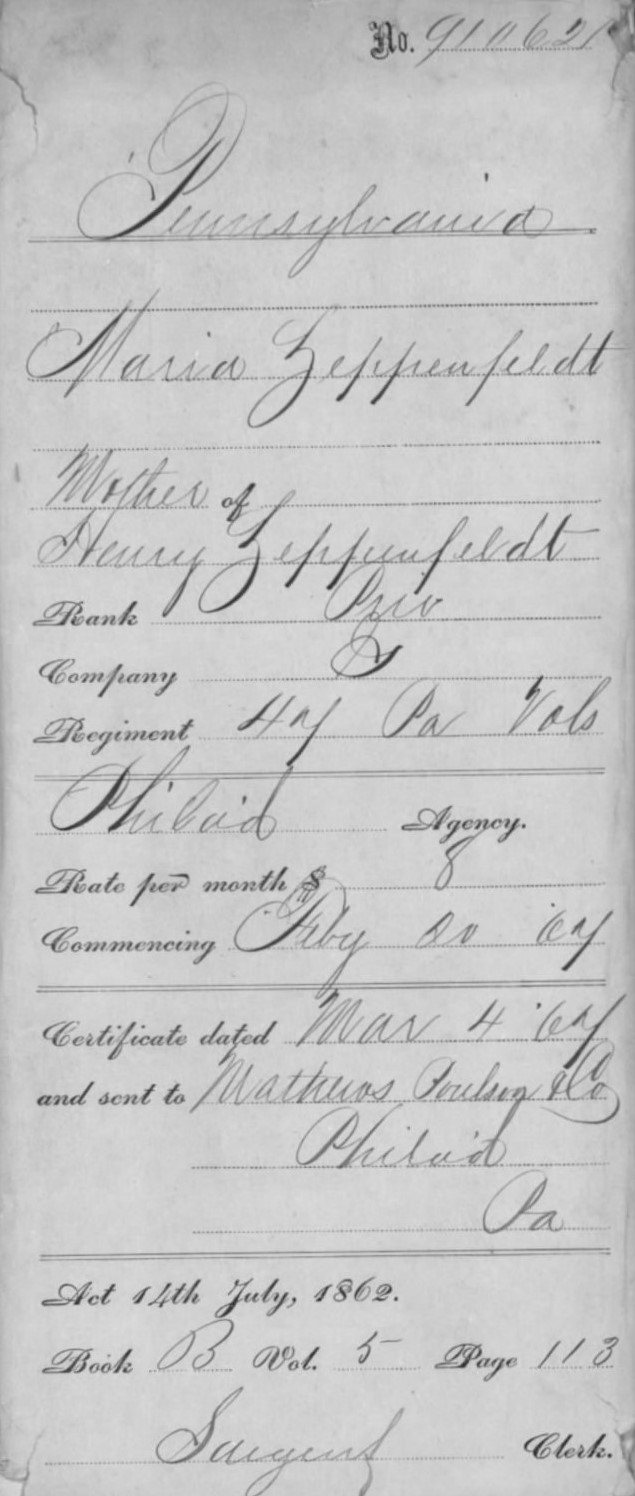 No. 91062
Pennsylvania
Maria Zeppenfeldt
Mother of
Henry Zeppenfeldt
Rank Priv
Company
Regiment 47 Pa Vols
Philad Agency.
Rate per month $ 8
Commencing Feby 20 '67
Certificate dated Mar 4 '67
and sent to Mathews Poulson & Co
Philad
Pa
Act 14th July, 1862.
Book B Vol. 5 Page 113
Sargent Clerk.